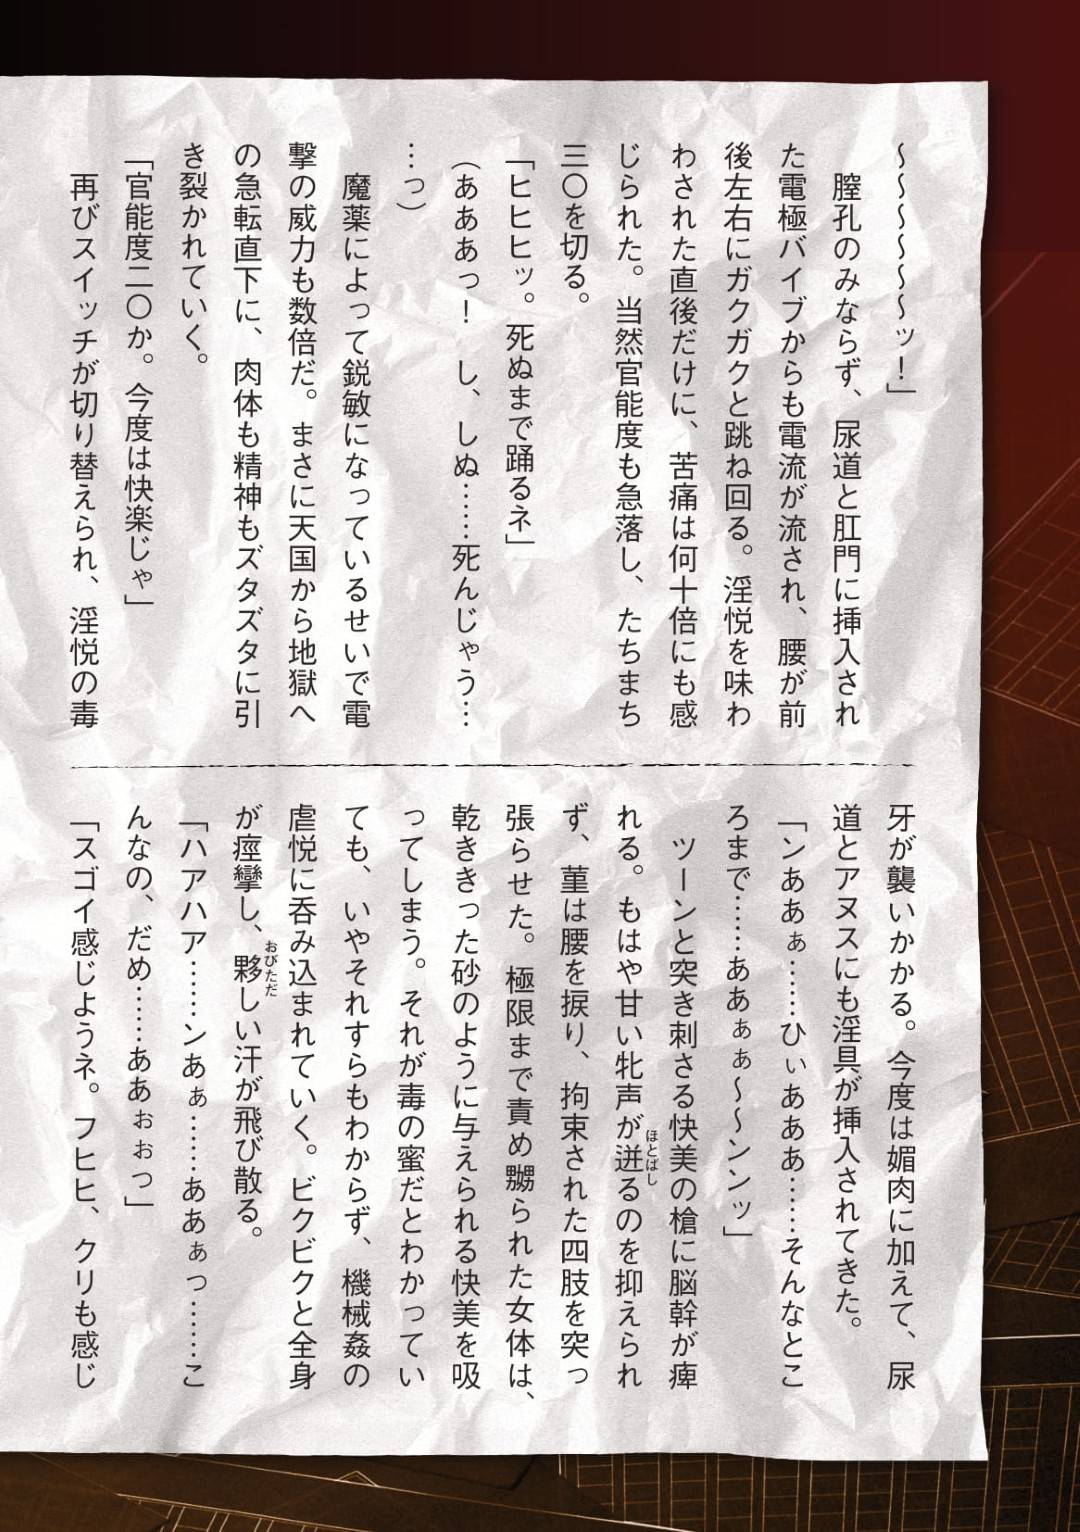 ～～～～～～ッ！」
膣孔のみならず、尿道と肛門に挿入され
た電極バイブからも電流が流され、腰が前
後左右にガクガクと跳ね回る。淫悦を味わ
わされた直後だけに、苦痛は何十倍にも感
じられた。当然官能度も急落し、たちまち
三〇を切る。
「ヒヒヒッ。死ぬまで踊るネ」
（あああっ！　し、しぬ……死んじゃう…
…っ）
魔薬によって鋭敏になっているせいで電
撃の威力も数倍だ。まさに天国から地獄へ
の急転直下に、肉体も精神もズタズタに引
き裂かれていく。
「官能度二〇か。今度は快楽じゃ」
再びスイッチが切り替えられ、淫悦の毒
牙が襲いかかる。今度は媚肉に加えて、尿
道とアヌスにも淫具が挿入されてきた。
「ンあぁぁ……ひぃあああ……そんなとこ
ろまで……ああぁぁ～～ンンッ」
ツーンと突き刺さる快美の槍に脳幹が痺
れる。もはや甘い牝声が迸るのを抑えられ
ほとばし
ず、菫は腰を捩り、拘束された四肢を突っ
張らせた。極限まで責め嬲られた女体は、
乾ききった砂のように与えられる快美を吸
ってしまう。それが毒の蜜だとわかってい
ても、いやそれすらもわからず、機械姦の
虐悦に呑み込まれていく。ビクビクと全身
が痙攣し、夥しい汗が飛び散る。
おびただ
「ハアハア……ンあぁ……ああぁっ……こ
んなの、だめ……ああぉぉっ」
「スゴイ感じようネ。フヒヒ、クリも感じ